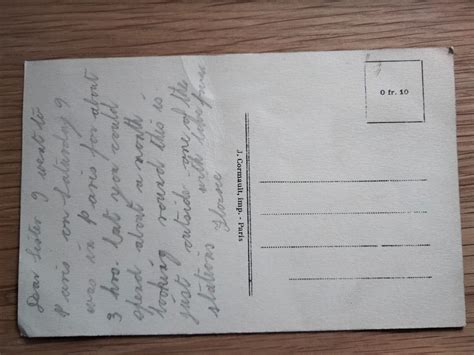 Dear Sister I went to
Paris on Saturday I
was in Paris for about
3 hrs. but you could
spend about a month
looking round this is
just outside one of the
stations with love from
Horace
J. Cormault, imp. - Paris
0 fr. 10